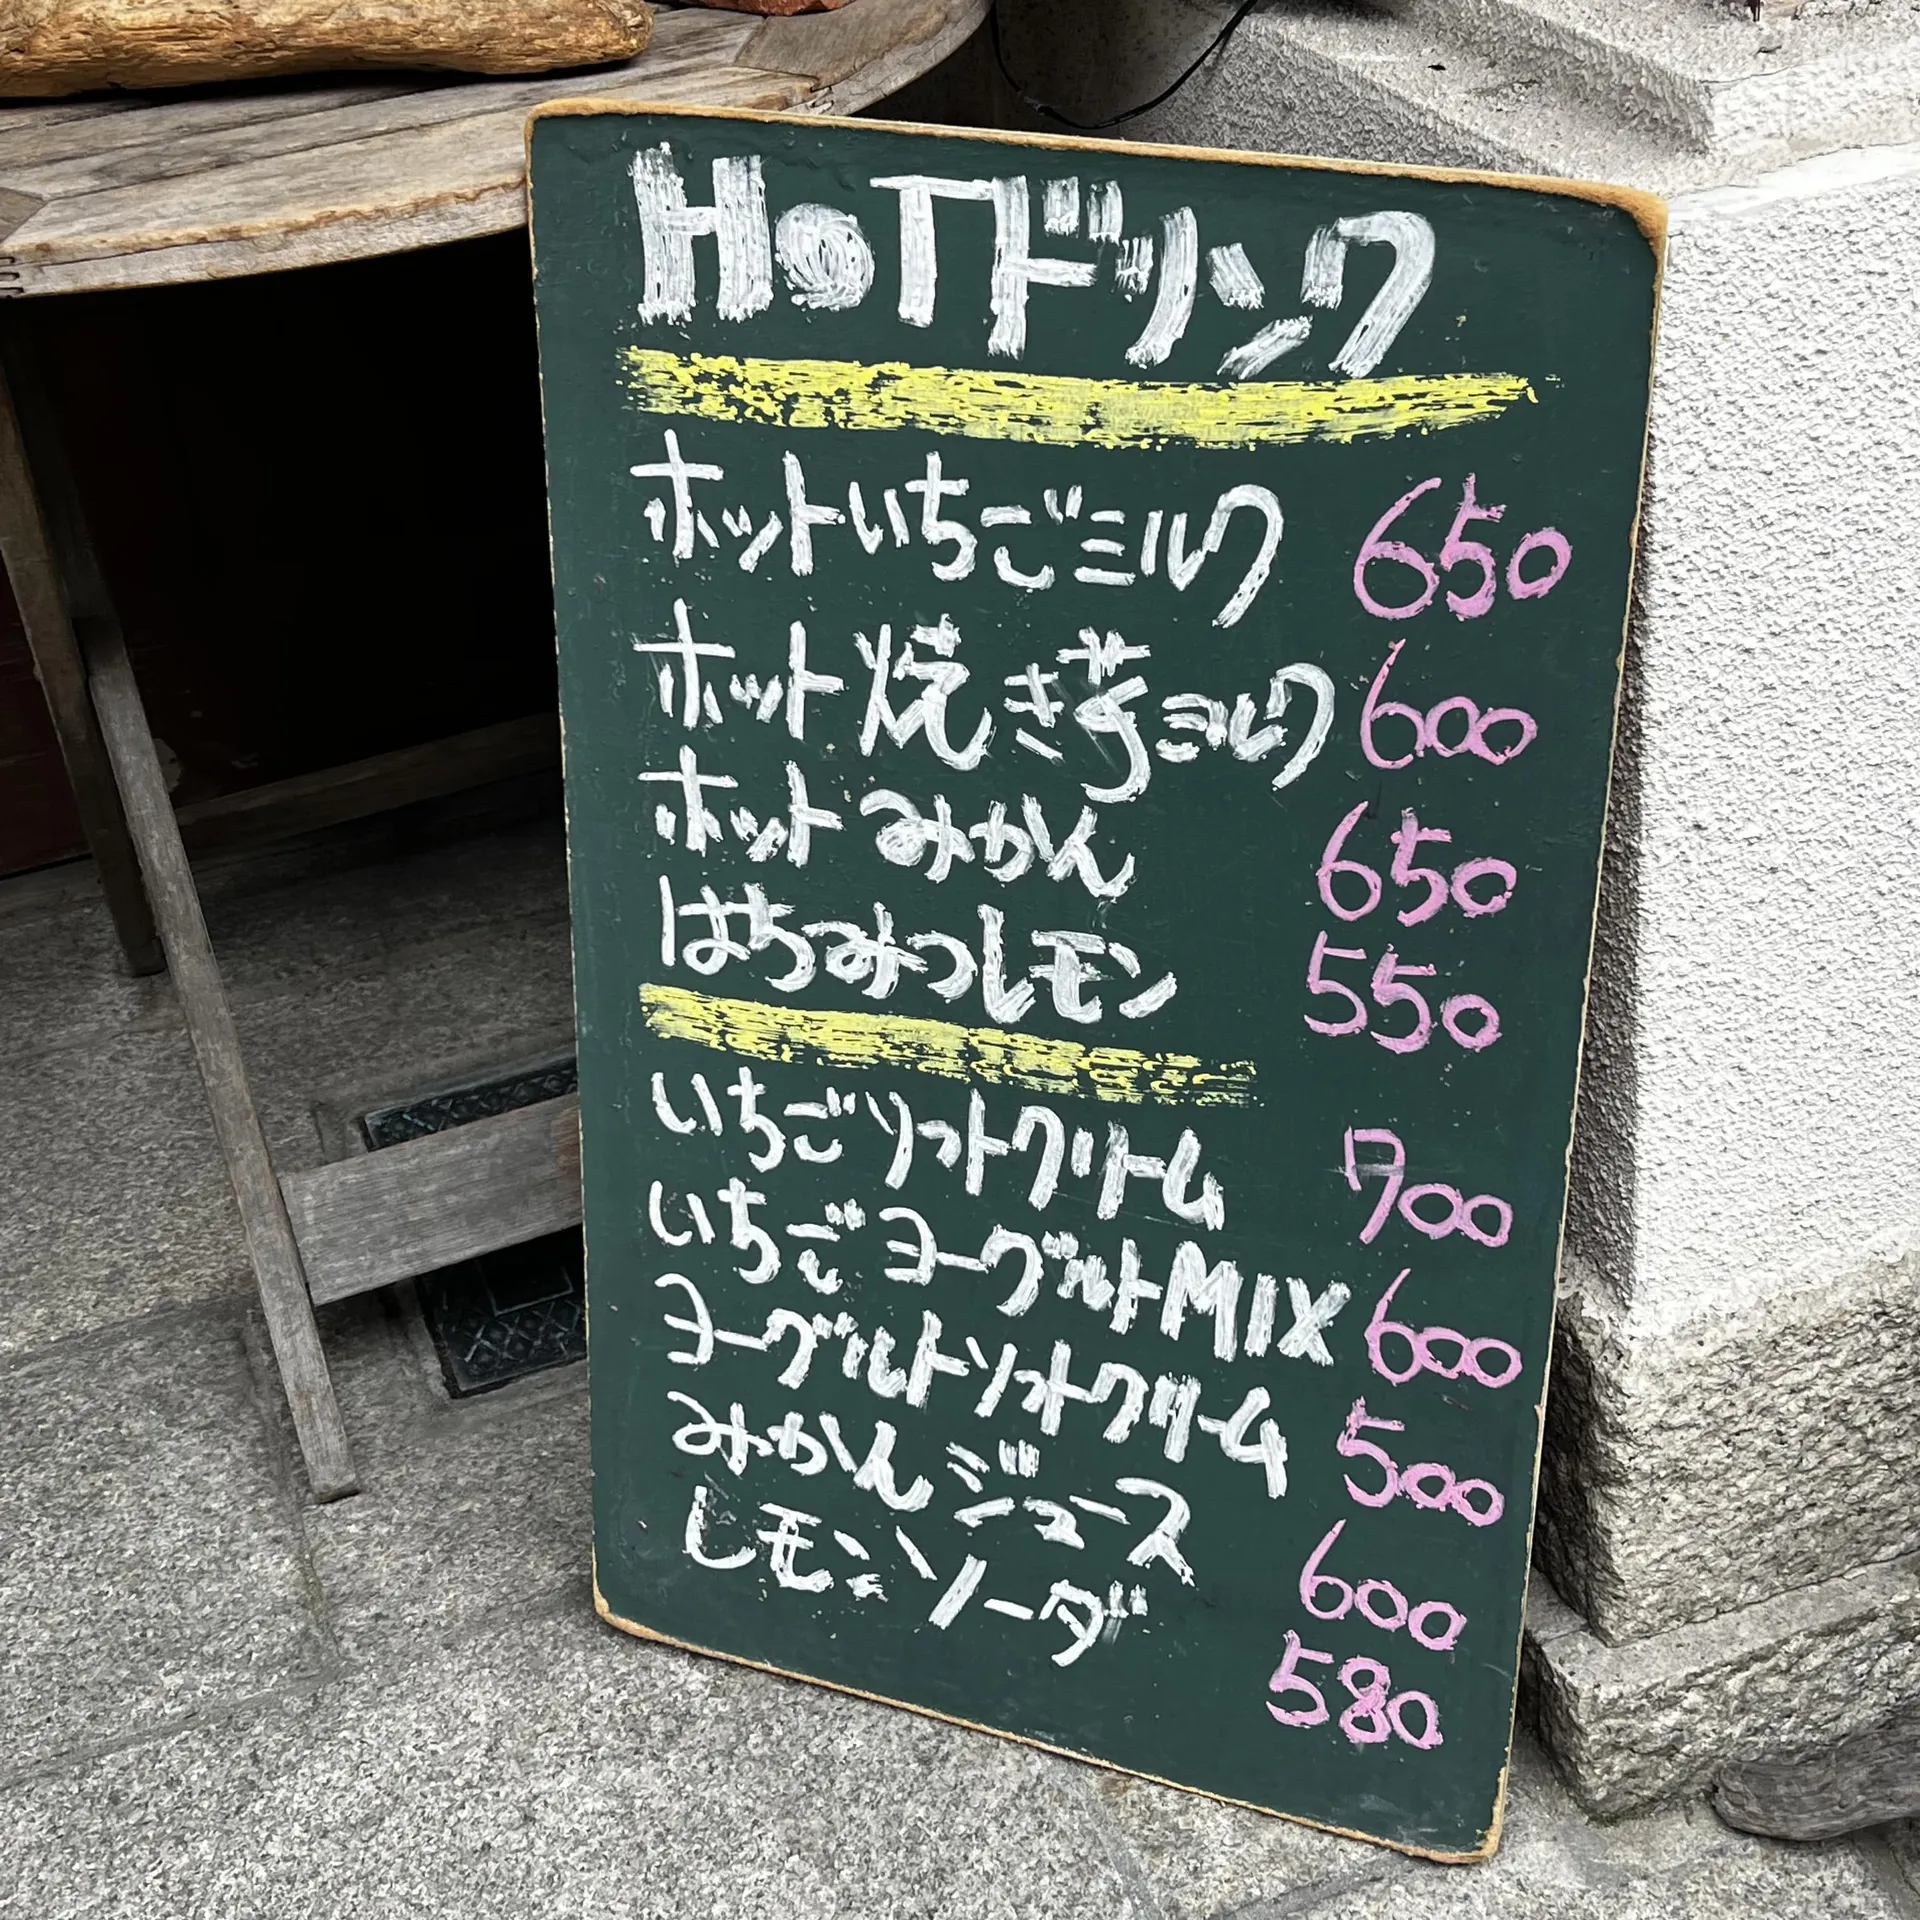 HOTドリンク
ホットいちごミルク 650
ホット焼き芋ミルク 600
ホットみかん 650
はちみつレモン 550
いちごソフトクリーム 700
いちごヨーグルトMIX 600
ヨーグルトソフトクリーム 500
みかんジュース 600
レモンソーダ 580